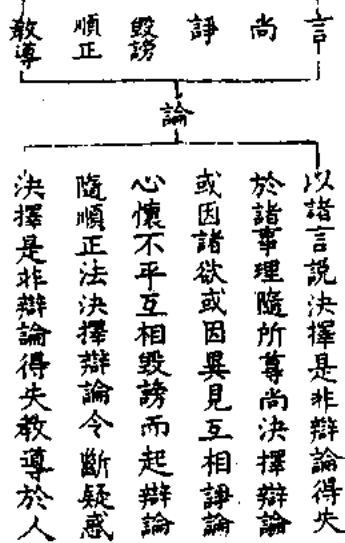 言
尚
諍
毀謗
順正
教導
論
以諸言說決擇是非辯論得失
於諸事理隨所尊尚決擇辯論
或因諸欲或因異見互相諍論
心懷不平互相毀謗而起辯論
隨順正法決擇辯論令斷疑惑
決擇是非辯論得失教導於人